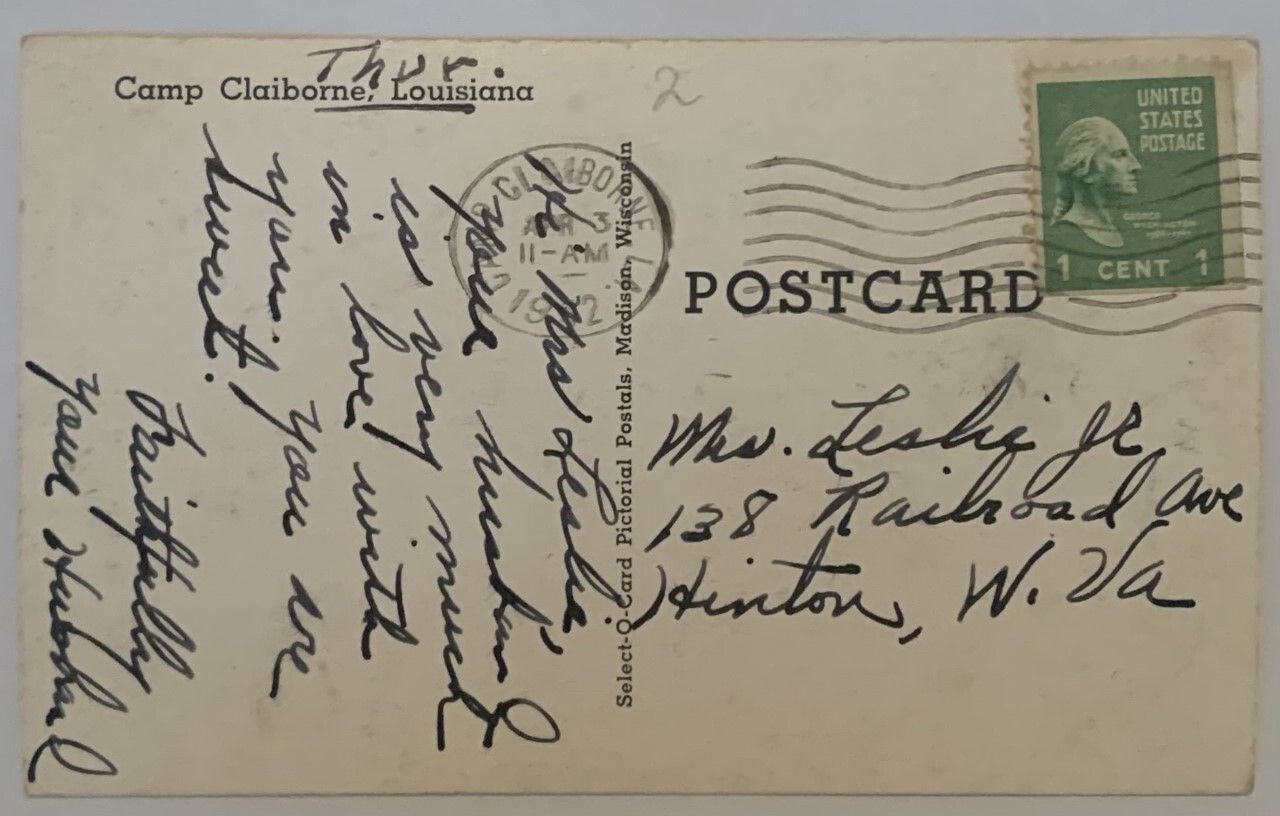 Thur.
Camp Claiborne, Louisiana
2
CLAIBORNE
APR 3
11-AM
1942
LA
UNITED
STATES
POSTAGE
GEORGE
WASHINGTON
1 CENT 1
POSTCARD
Select-O-Card Pictorial Postals, Madison, Wisconsin
Hi. Mrs Leslie
Your husband
is very much
in love with
you. You are
sweet!
Faithfully
Your Husband
Mrs. Leslie Jr
138 Railroad Ave
Hinton, W. Va